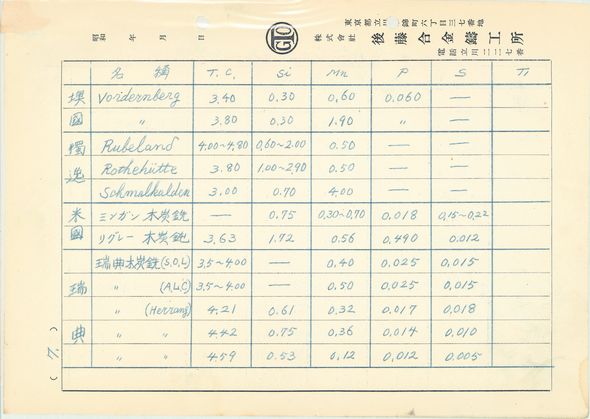 東京都立川 錦町六丁目三七番地
株式會社 後藤合金鑄工所
電話立川二二二七番
昭和 年 月 日
GTO
名稱 T.C. Si Mn P S Ti
墺國 Voidernberg 3.40 0.30 0.60 0.060 —
〃 3.80 0.30 1.90 〃 —
獨逸 Rubeland 4.00~4.80 0.60~2.00 0.50 — —
Rothehütte 3.80 1.00~2.90 0.50 — —
Schmalkalden 3.00 0.70 4.00 — —
米國 ミシガン 木炭銑 — 0.75 0.30~0.70 0.018 0.15~0.22
リグレー 木炭銑 3.63 1.72 0.56 0.490 0.012
瑞典 瑞典木炭銑(S.O.L) 3.5~4.00 — 0.40 0.025 0.015
〃 (A.L.C) 3.5~4.00 — 0.50 0.025 0.015
〃 (Herrang) 4.21 0.61 0.32 0.017 0.018
〃 〃 4.42 0.75 0.36 0.014 0.010
〃 〃 4.59 0.53 0.12 0.012 0.005
(7.)